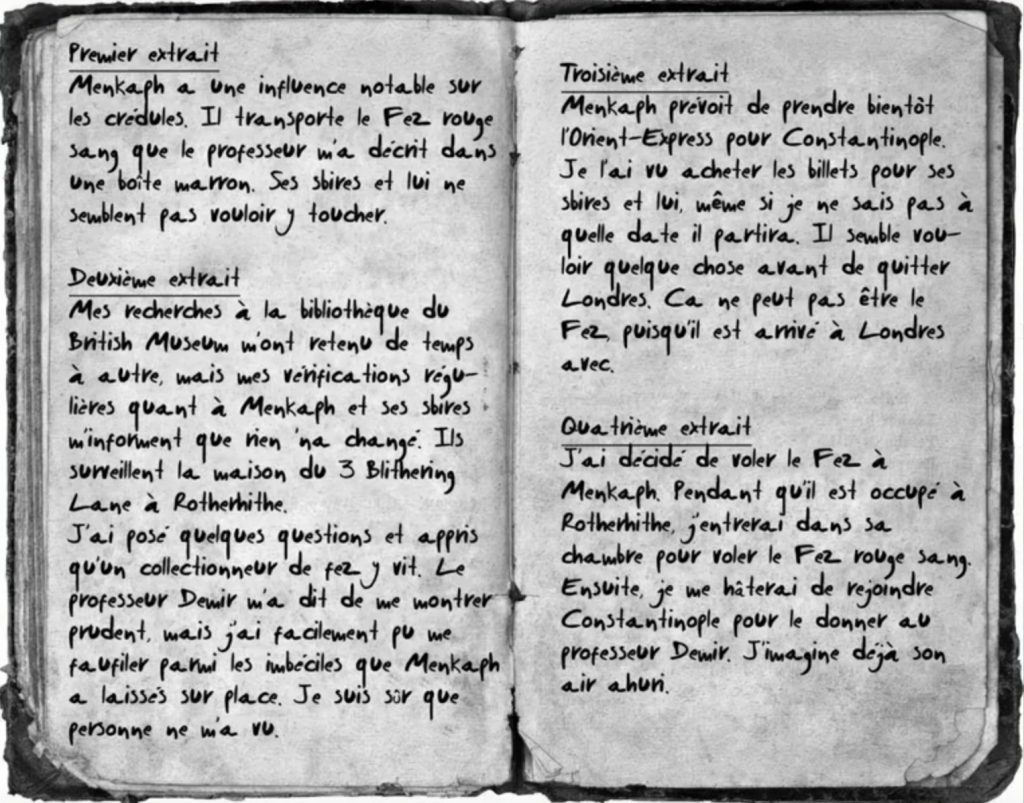 Premier extrait
Menkaph a une influence notable sur
les crédules. Il transporte le Fez rouge
sang que le professeur m'a décrit dans
une boîte marron. Ses sbires et lui ne
semblent pas vouloir y toucher.
Deuxième extrait
Mes recherches à la bibliothèque du
British Museum m'ont retenu de temps
à autre, mais mes vérifications régu-
lières quant à Menkaph et ses sbires
m'informent que rien 'na changé. Ils
surveillent la maison du 3 Blithering
Lane à Rotherhithe.
J'ai posé quelques questions et appris
qu'un collectionneur de fez y vit. Le
professeur Demir m'a dit de me montrer
prudent, mais j'ai facilement pu me
faufiler parmi les imbéciles que Menkaph
a laissés sur place. Je suis sûr que
personne ne m'a vu.
Troisième extrait
Menkaph prévoit de prendre bientôt
l'Orient-Express pour Constantinople.
Je l'ai vu acheter les billets pour ses
sbires et lui, même si je ne sais pas à
quelle date il partira. Il semble vou-
loir quelque chose avant de quitter
Londres. Ca ne peut pas être le
Fez, puisqu'il est arrivé à Londres
avec.
Quatrième extrait
J'ai décidé de voler le Fez à
Menkaph. Pendant qu'il est occupé à
Rotherhithe, j'entrerai dans sa
chambre pour voler le Fez rouge sang.
Ensuite, je me hâterai de rejoindre
Constantinople pour le donner au
professeur Demir. J'imagine déjà son
air ahuri.